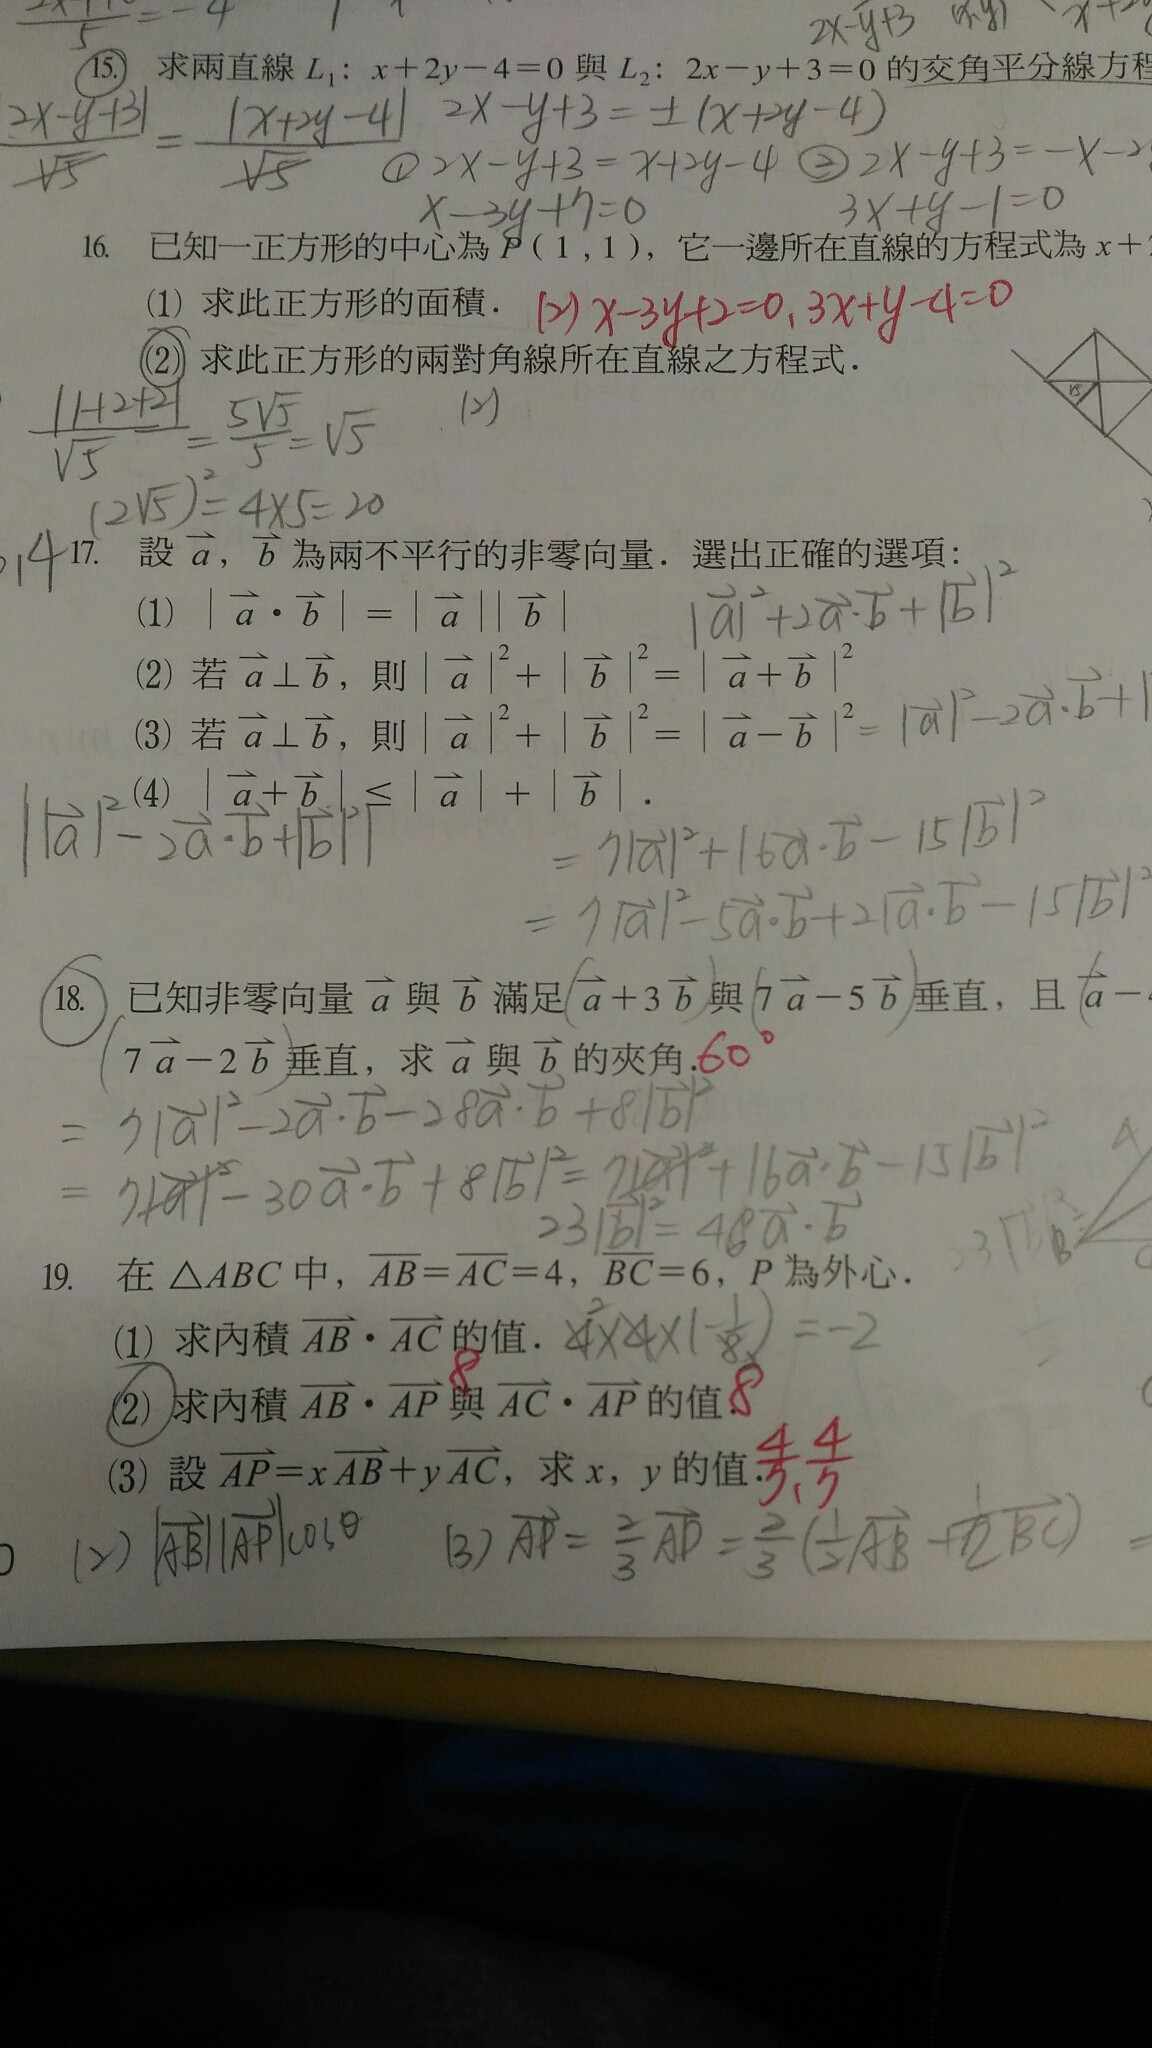 = -4
2x-y+3
15. 求兩直線 L₁: x+2y-4=0 與 L₂: 2x-y+3=0 的交角平分線方程
|2x-y+3|/√5 = |x+2y-4|/√5 2x-y+3=±(x+2y-4)
① 2x-y+3=x+2y-4 ② 2x-y+3=-x-2y
x-3y+7=0 3x+y-1=0
16. 已知一正方形的中心為 P(1,1), 它一邊所在直線的方程式為 x+
(1) 求此正方形的面積. (2) x-3y+2=0, 3x+y-4=0
(2) 求此正方形的兩對角線所在直線之方程式.
|1+2+2|/√5 = 5√5/5 = √5 (2)
√5
(2√5)² = 4×5=20
,4 17. 設 a⃗, b⃗ 為兩不平行的非零向量. 選出正確的選項:
(1) |a⃗·b⃗| = |a⃗||b⃗| |a⃗|²+2a⃗·b⃗+|b⃗|²
(2) 若 a⃗⊥b⃗, 則 |a⃗|²+|b⃗|²=|a⃗+b⃗|²
(3) 若 a⃗⊥b⃗, 則 |a⃗|²+|b⃗|²=|a⃗-b⃗|² = |a⃗|²-2a⃗·b⃗+|
(4) |a⃗+b⃗| ≤ |a⃗|+|b⃗|.
||a⃗|²-2a⃗·b⃗+|b⃗|²| = 7|a⃗|²+16a⃗·b⃗-15|b⃗|²
= 7|a⃗|²-5a⃗·b⃗+21a⃗·b⃗-15|b⃗|²
18. 已知非零向量 a⃗ 與 b⃗ 滿足(a⃗+3b⃗)與(7a⃗-5b⃗)垂直, 且(a⃗-
(7a⃗-2b⃗)垂直, 求 a⃗ 與 b⃗ 的夾角. 60°
= 7|a⃗|²-2a⃗·b⃗-28a⃗·b⃗+8|b⃗|²
= 7|a⃗|²-30a⃗·b⃗+8|b⃗|²=7|a⃗|²+16a⃗·b⃗-15|b⃗|² A
23|b⃗|²=46a⃗·b⃗ B
19. 在 △ABC 中, AB=AC=4, BC=6, P 為外心.
(1) 求內積 AB⃗·AC⃗ 的值. 4×4×(-1/8) = -2
(2) 求內積 AB⃗·AP⃗ 與 AC⃗·AP⃗ 的值. 8 8
(3) 設 AP⃗=xAB⃗+yAC⃗, 求 x, y 的值. 4/7, 4/7
(2) |AB⃗||AP⃗|cosθ (3) AP⃗ = 2/3 AD⃗ = 2/3 (1/2 AB⃗ + 1/2 BC⃗) =